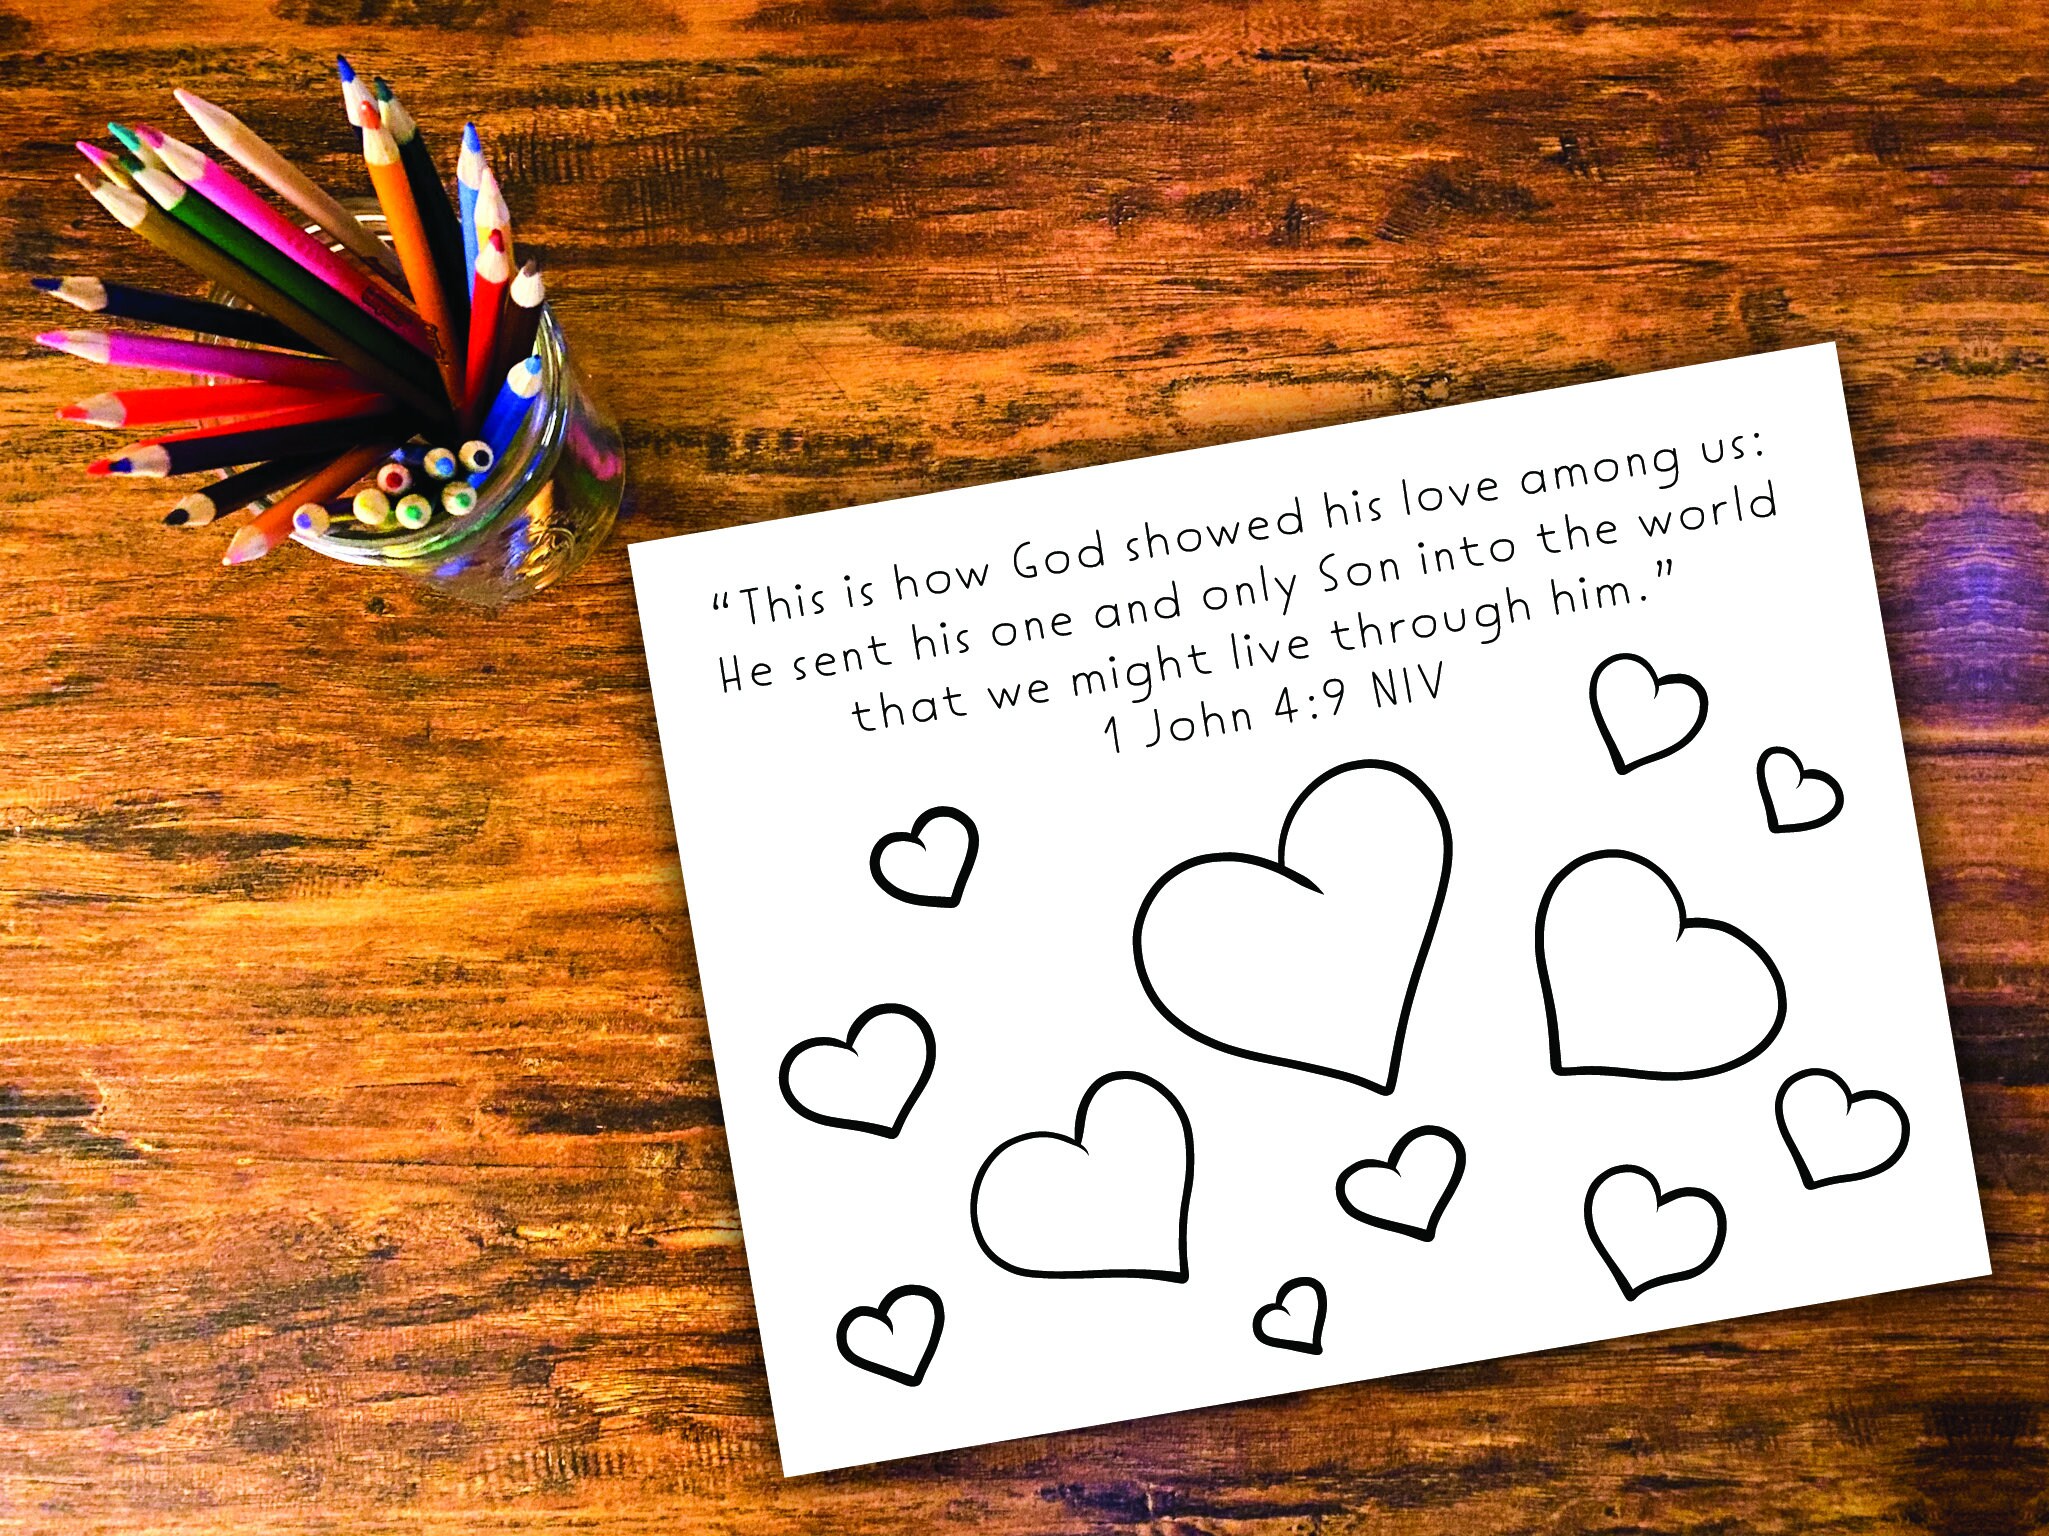 “This is how God showed his love among us:
He sent his one and only Son into the world
that we might live through him.”
1 John 4:9 NIV